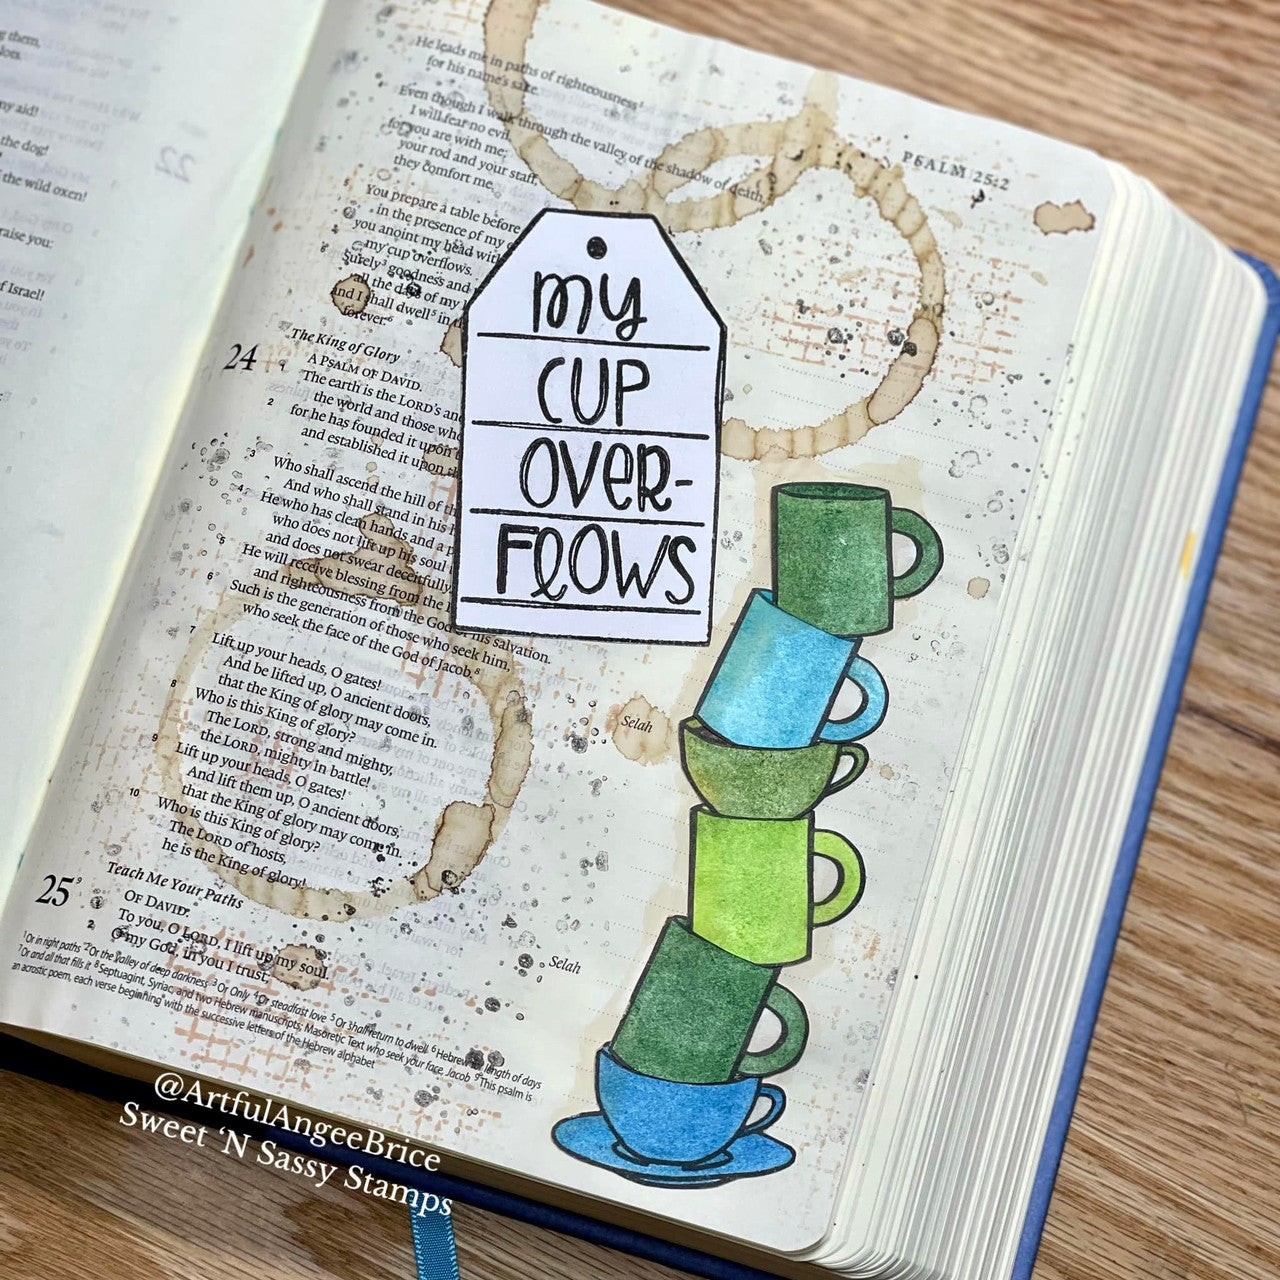 g them,
ny aid!
the dog!
the wild oxen!
raise you:
f Israel!
22
PSALM 25:2
He leads me in paths of righteousness¹
for his name's sake.
Even though I walk through the valley of the shadow of death,
I will fear no evil,
for you are with me;
your rod and your staff,
they comfort me.
5 You prepare a table before
in the presence of my
you anoint my head with
my cup overflows.
6 Surely³ goodness and
all the days of my
and I shall dwell⁵ in
forever.⁶
my
CUP
OVER-
FLOWS
The King of Glory
24 A PSALM OF DAVID.
1 The earth is the LORD's and
the world and those who
2 for he has founded it upon
and established it upon
3 Who shall ascend the hill of
And who shall stand in his
4 He who has clean hands and a
who does not lift up his soul
and does not swear deceitfully.
5 He will receive blessing from the
and righteousness from the God of his salvation.
6 Such is the generation of those who seek him,
who seek the face of the God of Jacob.⁸
Selah
7 Lift up your heads, O gates!
And be lifted up, O ancient doors,
that the King of glory may come in.
8 Who is this King of glory?
The LORD, strong and mighty,
the LORD, mighty in battle!
9 Lift up your heads, O gates!
And lift them up, O ancient doors,
that the King of glory may come in.
10 Who is this King of glory?
The LORD of hosts,
he is the King of glory!
Selah
Teach Me Your Paths
25⁹ OF DAVID.
To you, O LORD, I lift up my soul.
2 O my God, in you I trust;
¹Or in right paths ²Or the valley of deep darkness ³Or Only ⁴Or steadfast love ⁵Or shall return to dwell ⁶Hebrew for length of days
⁷Or and all that fills it ⁸Septuagint, Syriac, and two Hebrew manuscripts; Masoretic Text who seek your face, Jacob ⁹This psalm is
an acrostic poem, each verse beginning with the successive letters of the Hebrew alphabet
@ArtfulAngeeBrice
Sweet ‘N Sassy Stamps